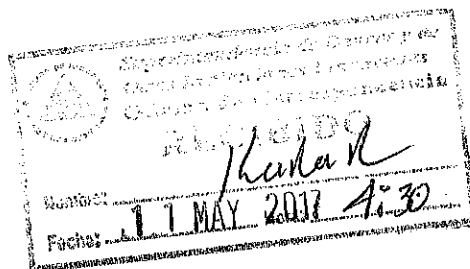 Superintendencia de Bancos y de
Otras Instituciones Financieras
Oficina de Correspondencia
RECIBIDO
Nombre:
Fecha: 11 MAY 2017 4:30